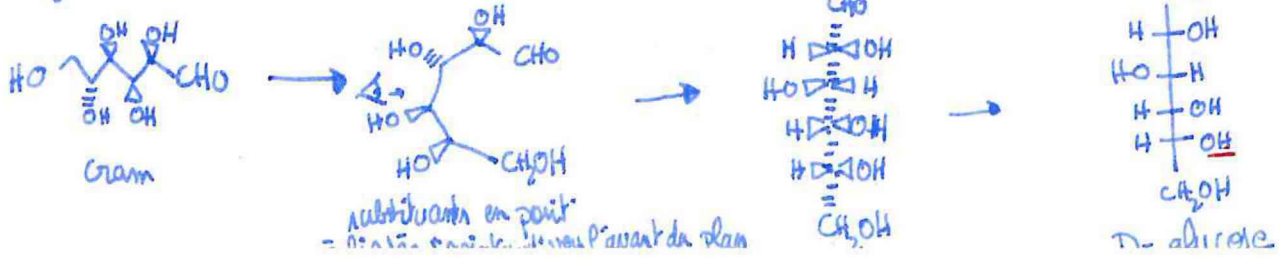 OH OH
HO CHO
OH OH
Cram
OH
HO CHO
HO
HO CH₂OH
substituants en point
l'avant du plan
CHO
H OH
HO H
H OH
H OH
CH₂OH
H OH
HO H
H OH
H OH
CH₂OH
D-glucose